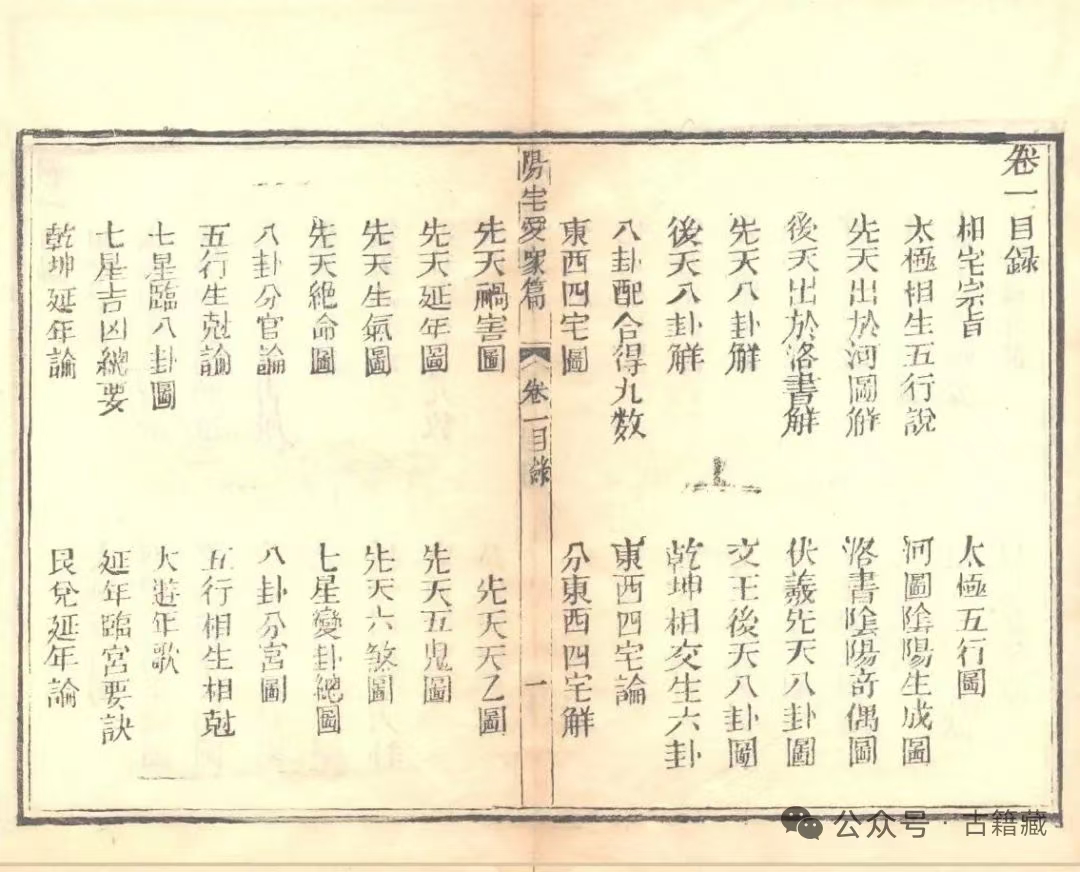 卷一目録
相宅宗旨
太極五行圖
太極相生五行說
河圖陰陽生成圖
先天出於河圖解
洛書陰陽奇偶圖
後天出於洛書解
伏羲先天八卦圖
先天八卦解
文王後天八卦圖
後天八卦解
乾坤相交生六卦
八卦配合得九数
東西四宅論
東西四宅圖
分東西四宅解
陽宅愛眾篇
卷一目録
一
先天禍害圖
先天天乙圖
先天延年圖
先天五鬼圖
先天生氣圖
先天六煞圖
先天絶命圖
七星變卦總圖
八卦分官論
八卦分宮圖
五行生尅論
五行相生相尅
七星臨八卦圖
大遊年歌
七星吉凶總要
延年臨宮要訣
乾坤延年論
艮兌延年論
公众号·古籍藏